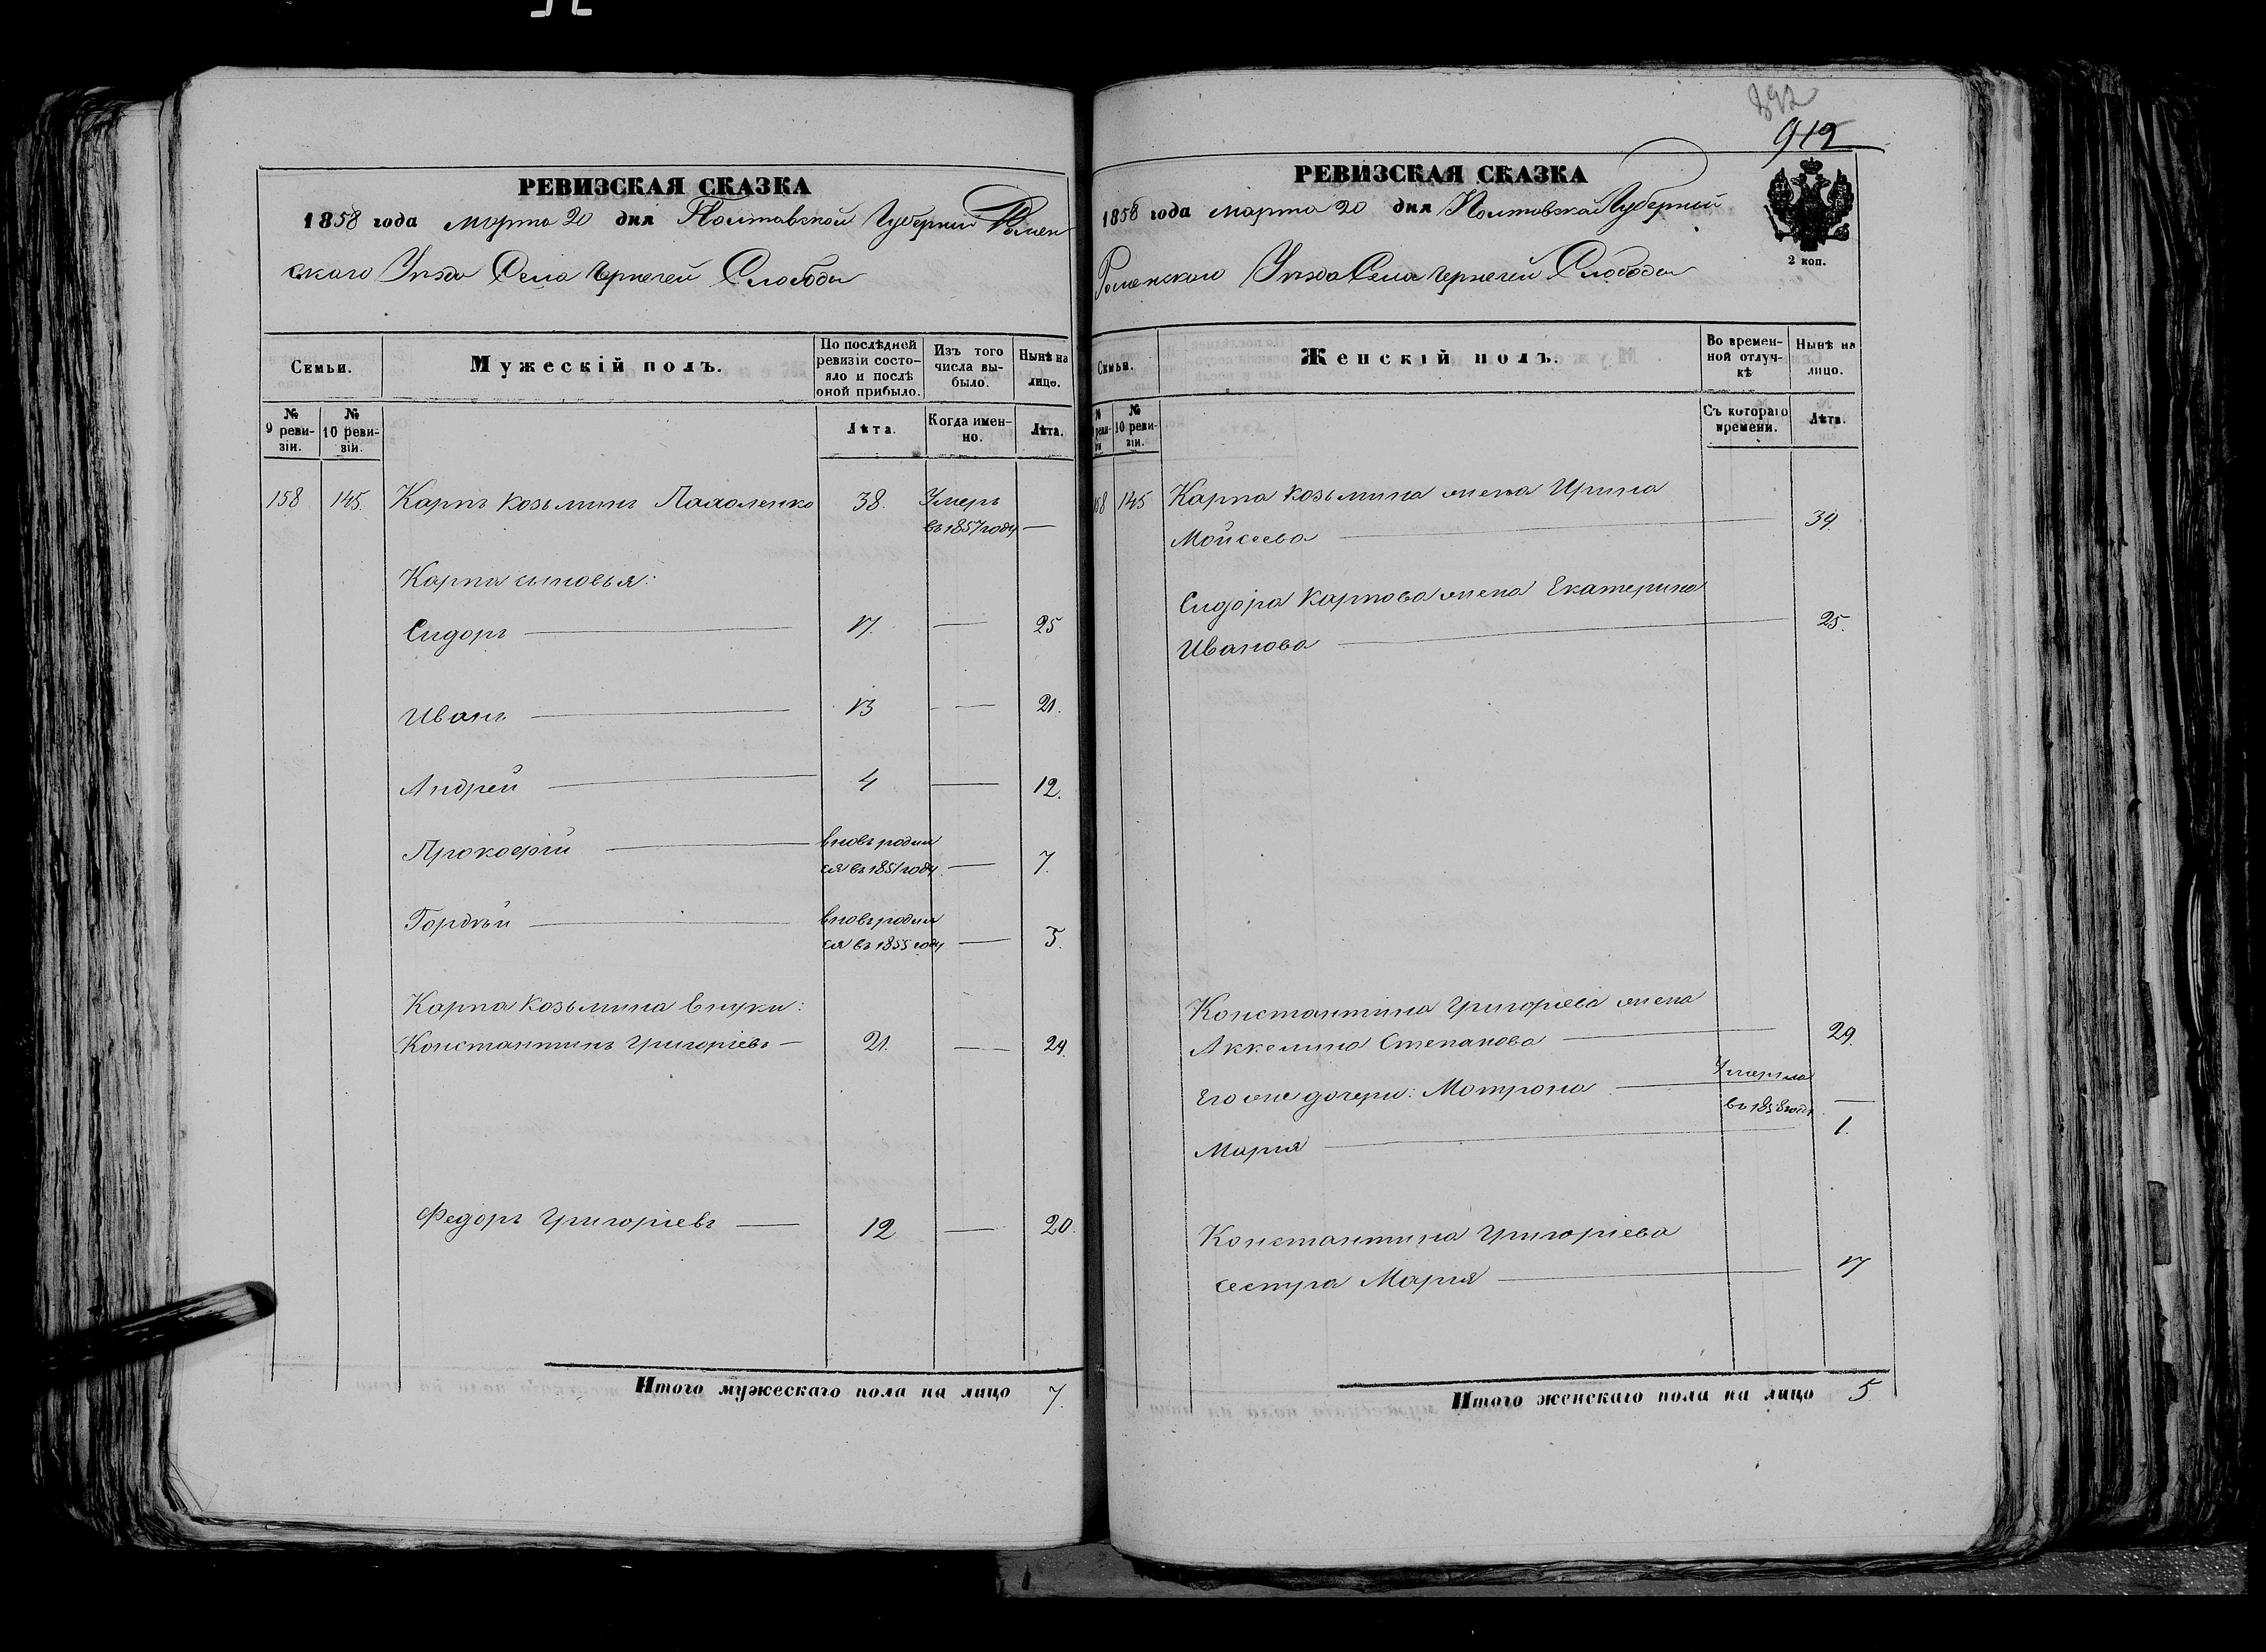 892
912
РЕВИЗСКАЯ СКАЗКА
1858 года Марта 20 дня Полтавской Губерніи Ромен
скаго Уѣзда Села Чернечей Слободы
Семьи.
Мужескій полъ.
По послѣдней ревизіи состояло и послѣ оной прибыло.
Изъ того числа выбыло.
Нынѣ на лицо.
№ 9 ревизіи.
№ 10 ревизіи.
Лѣта.
Когда именно.
Лѣта.
158 145. Карпъ Козьминъ 38. Умеръ
въ 1857 году —
Карпа сыновья:
Сидоръ — 17. — 25
Иванъ — 13 — 21.
Андрей — 4 — 12.
Прокофій — вновь родил
ся въ 1851 году — 7.
Гордѣй — вновь родил
ся въ 1855 году — 3.
Карпа Козьмина внуки:
Константинъ Григорьевъ — 21. — 29.
Федоръ Григорьевъ — 12 — 20.
Итого мужескаго пола на лицо 7.
РЕВИЗСКАЯ СКАЗКА
1858 года марта 20 дня Полтавской Губерніи
Роменскаго Уѣзда Села Чернечей Слободы
2 коп.
Семьи.
Женскій полъ.
Во временной отлучкѣ
Нынѣ на лицо.
№ 10 ревизіи.
Съ котораго времени.
Лѣта.
158 145 Карпа Козьмина жена Ирина
Мойсеева — 39.
Сидора Карпова жена Екатерина
Иванова — 25.
Константина Григорьева жена
Аккелина Степанова — 29.
Его же дочери: Мотрона — Умерла
въ 1858 году —
Марія — 1.
Константина Григорьева
сестра Марія — 17
Итого женскаго пола на лицо 5